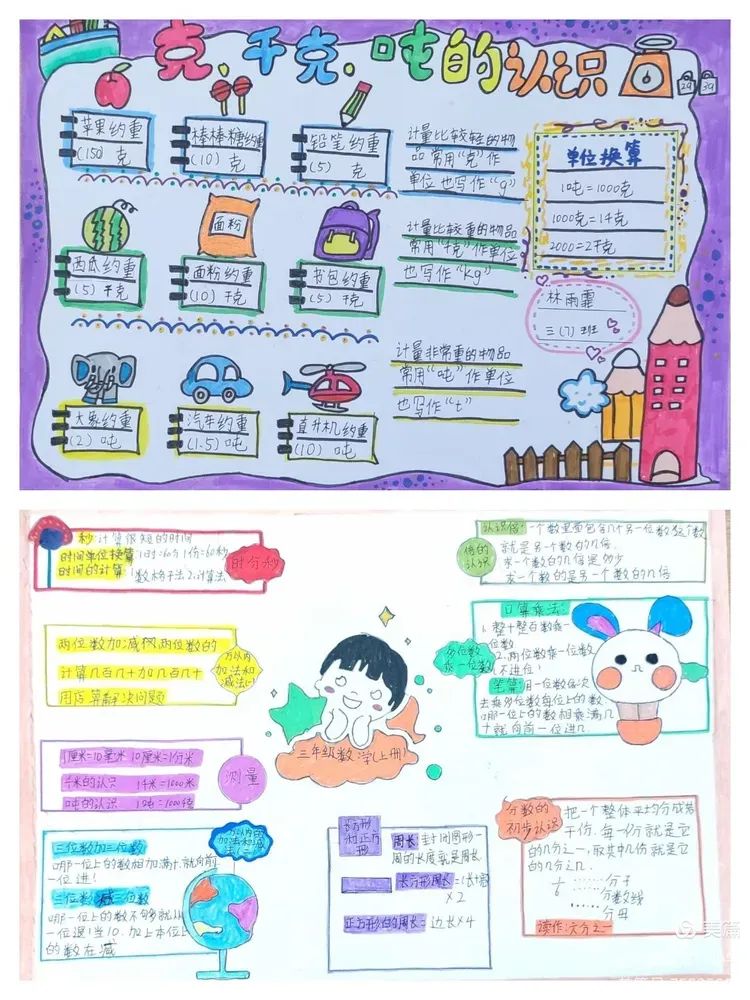 克、千克、吨的认识
2g
3g
苹果约重
(150) 克
棒棒糖约重
(10) 克
铅笔约重
(5) 克
计量比较轻的物
品常用“克”作
单位也写作“g”
西瓜约重
(5) 千克
面粉
面粉约重
(10) 千克
书包约重
(5) 千克
计量比较重的物品
常用“千克”作单位
也写作“kg”
大象约重
(2) 吨
汽车约重
(1.5) 吨
直升机约重
(10) 吨
计量非常重的物品
常用“吨”作单位
也写作“t”
单位换算
1000克=1千克
2000=2千克
林雨霏
三(7)班
秒:计算很短的时间
时间单位换算:1时=60分 1份=60秒
时间的计算:
数格子法 2.计算法
时分秒
两位数加减两位数的
计算几百几十加几百几十
用估算解决问题
万以内
加法和
减法(一)
1厘米=10毫米 10厘米=1分米
千米的认识 1千米=1000米
吨的认识
测量
三位数加三位数
哪一位上的数相加满十,就向前
一位进1
三位数减三位数
哪一位上的数不够就从
一位退1当10,加上本位上
的数在减
万以内的
加法和减
三年级数学(上册)
认识倍:一个数里面包含几个另一位数这个数
就是另一个数的几倍.
求一个数的几倍是多少
求一个数的是另一个数的几倍
倍的
认识
口算乘法:
1.整十整百数乘一
位数
2.两位数乘一位数
不进位!
笔算:用一位数依次
去乘多位数每位上的数
哪一位上的数相乘满几
十就向前一位进几
多位数
乘一位数
长方形
和正方
形
周长:封闭图形一
周的长度就是周长
长方形周长=(长+宽)
×2
正方形的周长=边长×4
分数的
初步认识
把一个整体平均分成若
干份,每一份就是它
的几分之一,取其中几份就是它
的几分之几
分子
分数线
分母
读作:六分之一
美篇